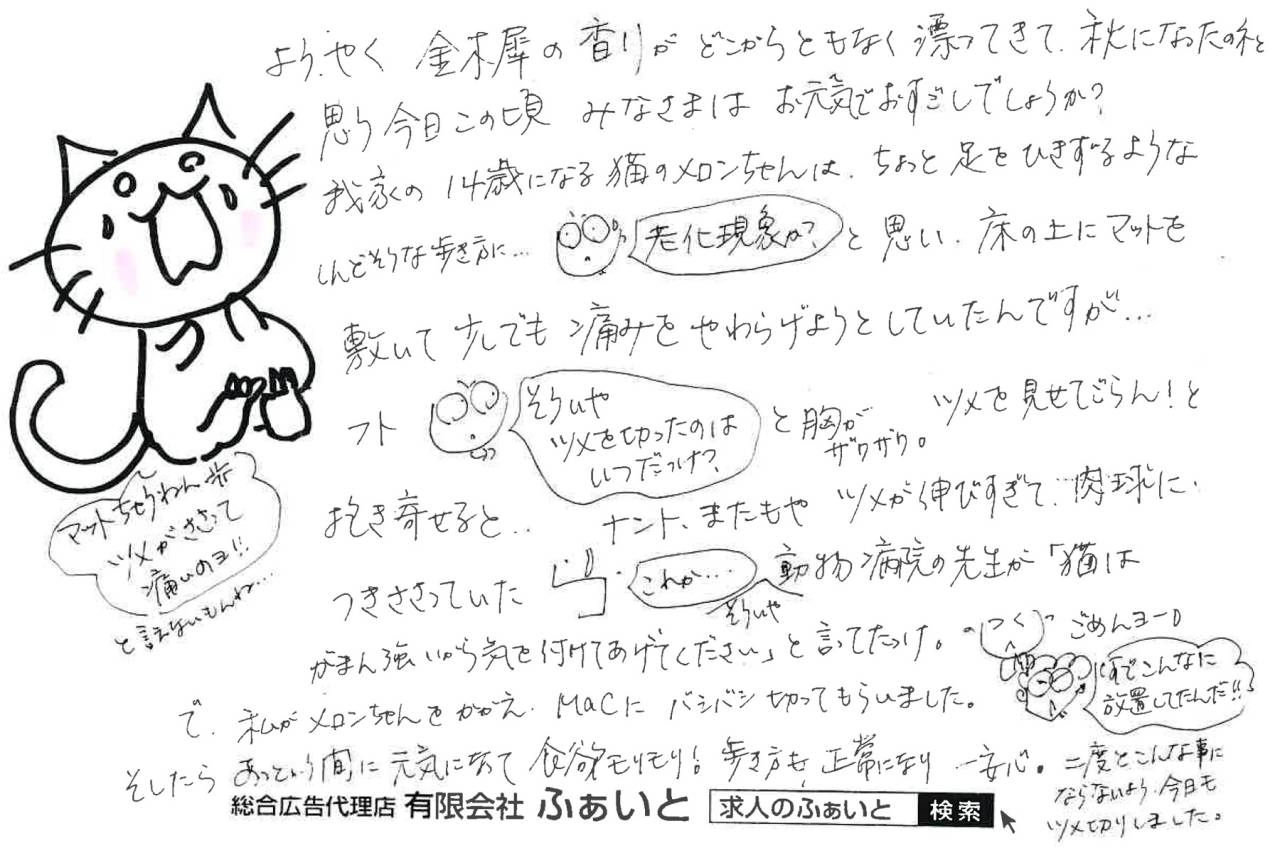 ようやく 金木犀の香りが どこからともなく漂ってきて、秋になったのネと
思う今日この頃 みなさまは お元気でおすごしでしょうか?
我家の 14歳になる猫のメロンちゃんは、ちょっと足をひきずるような
しんどそうな歩き方に… 老化現象か? と思い、床の上にマットを
敷いて 少しでも 痛みを やわらげようとしていたんですが…
フト そういや
ツメを切ったのは
いつだっけ? と胸が
ザワザワ。 ツメを見せてごらん!と
抱き寄せると… ナント、またもや ツメが伸びすぎて、肉球に、
つきささっていた これか… 動物病院の先生が「猫は
そういや
がまん強いから気を付けてあげてください」と言ってたっけ。
ごめんヨー
で、私がメロンちゃんを かかえ、MaCに バシバシ切ってもらいました。
そしたら あっという間に 元気になって 食欲モリモリ! 歩き方も、正常になり 一安心。
二度とこんな事に
ならないよう、今日も
ツメ切りしました。
マットちゃうねん
ツメがささって
痛いのヨ!!
と言えないもんね…
こんなに
放置してたんだ!!
総合広告代理店 有限会社 ふぁいと 求人のふぁいと 検索